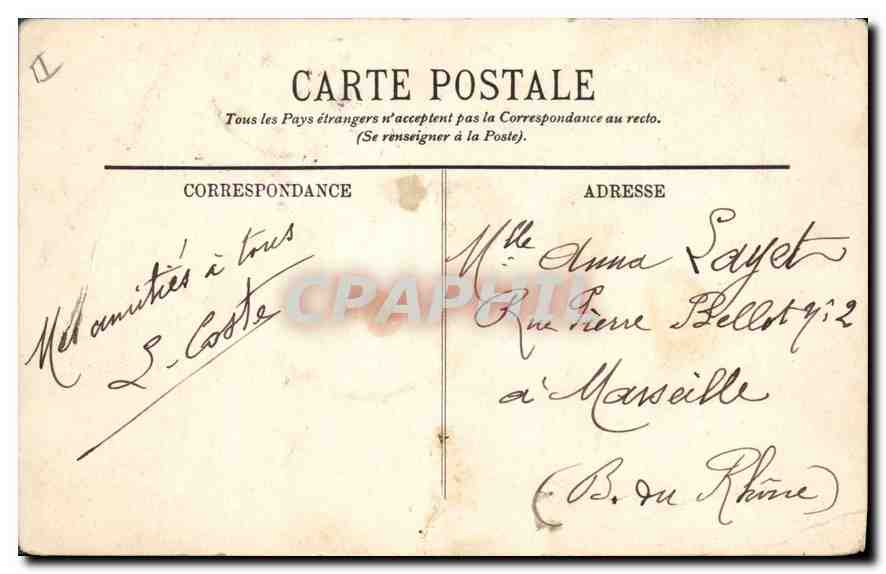 CARTE POSTALE
Tous les Pays étrangers n'acceptent pas la Correspondance au recto.
(Se renseigner à la Poste).
CORRESPONDANCE
Mes amitiés à tous
L. Coste
ADRESSE
Mlle Anna Layet
Rue Pierre Bellot n: 2
à Marseille
(B. du Rhône)
CPAPHIL